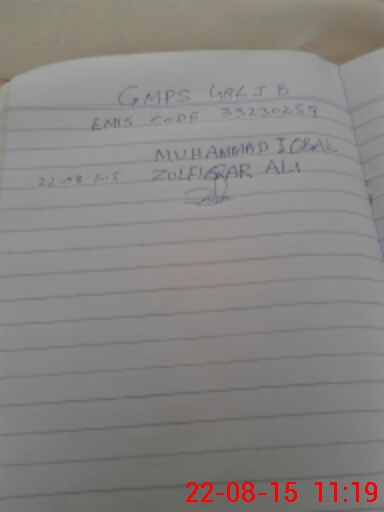 GMPS
EMIS CODE 33230259
MUHAMMAD IQBAL
22-08-2015 ZULFIQAR ALI
22-08-15 11:19